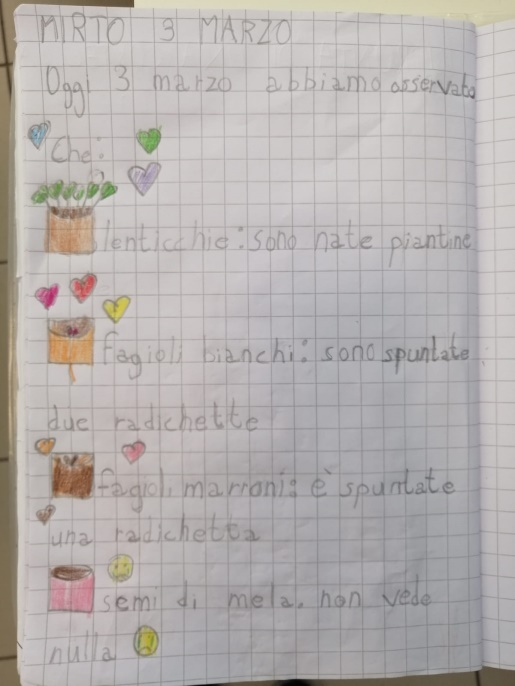 MIRTO 3 MARZO
Oggi 3 marzo abbiamo osservato
Che:
lenticchie: sono nate piantine
fagioli bianchi: sono spuntate
due radichette
fagioli marroni: è spuntate
una radichetta
semi di mela. non vede
nulla